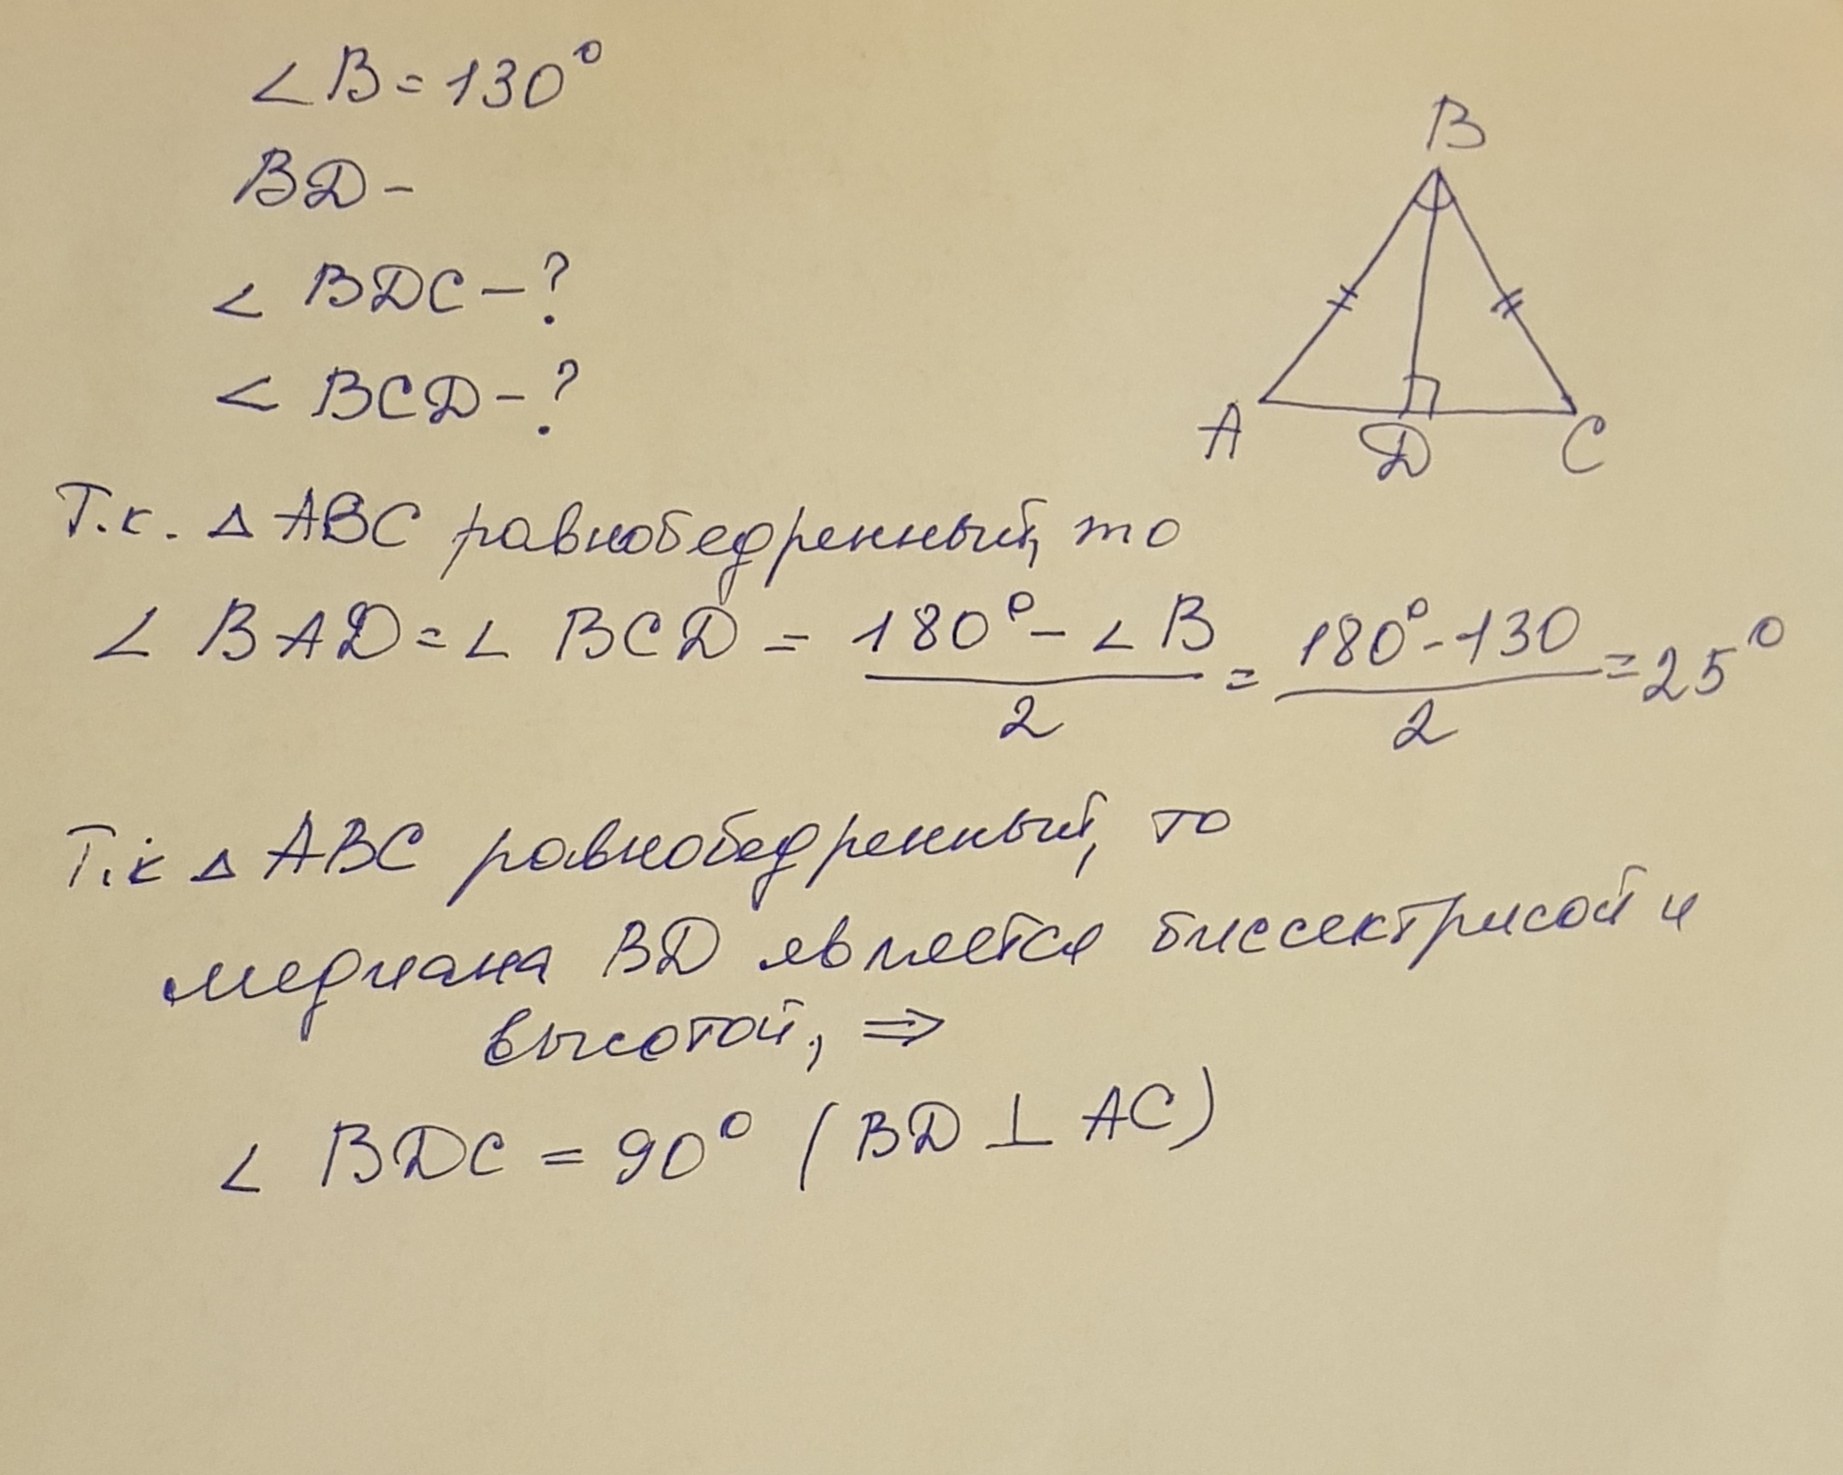 ∠B=130°
BD-
∠ BDC-?
∠ BCD-?
B
A D C
Т.к. △ABC равнобедренный, то
∠ BAD=∠ BCD = (180°-∠B)/2 = (180°-130)/2 = 25°
Т.к △ABC равнобедренный, то
медиана BD является биссектрисой и
высотой, ⇒
∠ BDC = 90° (BD ⊥ AC)